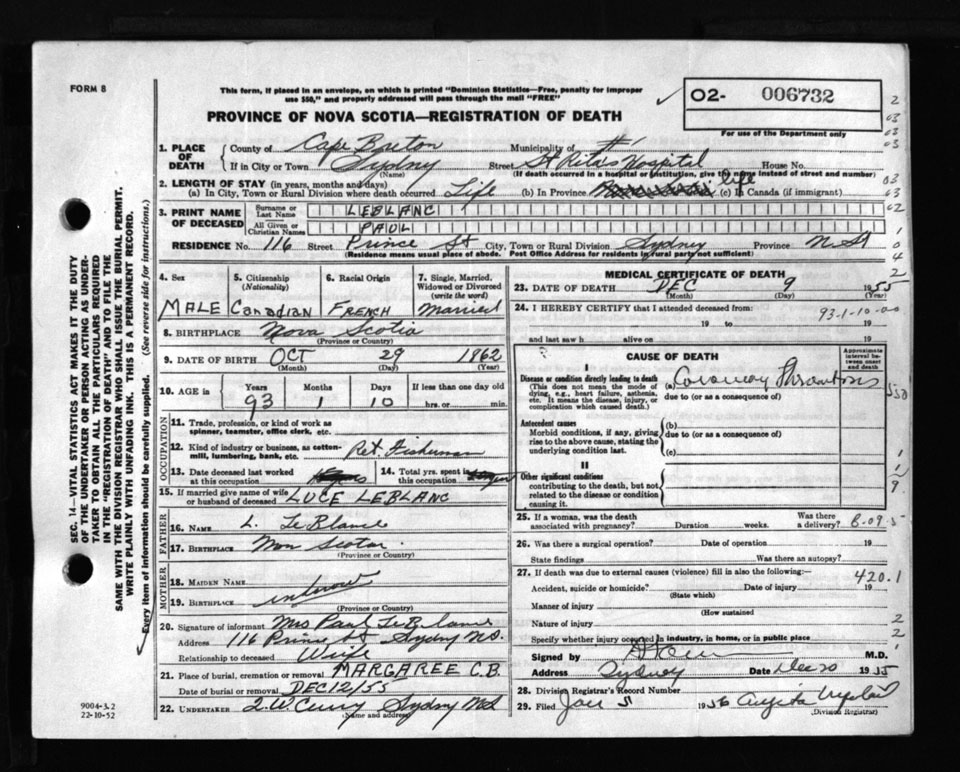 FORM 8
This form, if placed in an envelope, on which is printed "Dominion Statistics—Free, penalty for improper
use $50," and properly addressed will pass through the mail "FREE"
O2- 006732
For use of the Department only
PROVINCE OF NOVA SCOTIA—REGISTRATION OF DEATH
1. PLACE OF DEATH
County of Cape Breton Municipality of
If in City or Town Sydney Street St Rita's Hospital House No.
(Name) (If death occurred in a hospital or institution, give its name instead of street and number)
2. LENGTH OF STAY (in years, months and days)
(a) In City, Town or Rural Division where death occurred Life (b) In Province Life (c) In Canada (if immigrant)
3. PRINT NAME OF DECEASED
Surname or Last Name LEBLANC
All Given or Christian Names PAUL
RESIDENCE No. 116 Street Prince St City, Town or Rural Division Sydney Province N.S.
(Residence means usual place of abode. Post Office Address for residents in rural party not sufficient)
4. Sex
MALE
5. Citizenship
(Nationality)
Canadian
6. Racial Origin
FRENCH
7. Single, Married, Widowed or Divorced
(write the word)
Married
8. BIRTHPLACE Nova Scotia
(Province or Country)
9. DATE OF BIRTH OCT 29 1862
(Month) (Day) (Year)
10. AGE in Years Months Days If less than one day old
93 1 10 hrs. or min.
OCCUPATION
11. Trade, profession, or kind of work as
spinner, teamster, office clerk, etc.
12. Kind of industry or business, as cotton-
mill, lumbering, bank, etc. Ret. Fisherman
13. Date deceased last worked
at this occupation
14. Total yrs. spent in
this occupation
15. If married give name of wife
or husband of deceased LUCE LEBLANC
FATHER
16. NAME L. LeBlanc
17. BIRTHPLACE Nova Scotia
(Province or Country)
MOTHER
18. MAIDEN NAME
19. BIRTHPLACE unknown
(Province or Country)
20. Signature of informant Mrs Paul LeBlanc
Address 116 Prince St Sydney N.S.
Relationship to deceased Wife
21. Place of burial, cremation or removal MARGAREE C.B.
Date of burial or removal DEC 12/55
22. UNDERTAKER Sydney N.S
(Name and address)
MEDICAL CERTIFICATE OF DEATH
23. DATE OF DEATH DEC 9 1955
(Month) (Day) (Year)
24. I HEREBY CERTIFY that I attended deceased from:
93-1-10-00
19 to 19
and last saw h alive on 19
CAUSE OF DEATH
Approximate interval between onset and death
I
Disease or condition directly leading to death
(This does not mean the mode of
dying, e.g., heart failure, asthenia,
etc. It means the disease, injury, or
complication which caused death.
(a) Coronary Thrombosis
due to (or as a consequence of)
Antecedent causes
Morbid conditions, if any, giving
rise to the above cause, stating the
underlying condition last.
(b)
due to (or as a consequence of)
(c)
II
Other significant conditions
contributing to the death, but not
related to the disease or condition
causing it.
25. If a woman, was the death
associated with pregnancy? Duration weeks. Was there
a delivery?
26. Was there a surgical operation? Date of operation 19
State findings Was there an autopsy?
27. If death was due to external causes (violence) fill in also the following:—
420.1
Accident, suicide or homicide? Date of injury 19
(State which)
Manner of injury
(How sustained
Nature of injury
Specify whether injury occurred in industry, in home, or in public place
Signed by M.D.
Address Sydney Date Dec 20 1955
28. Division Registrar's Record Number
29. Filed Jan 5 1956
(Division Registrar)
SEC. 14—VITAL STATISTICS ACT MAKES IT THE DUTY
OF THE UNDERTAKER OR PERSON ACTING AS UNDER-
TAKER TO OBTAIN ALL THE PARTICULARS REQUIRED
IN THE "REGISTRATION OF DEATH" AND TO FILE THE
SAME WITH THE DIVISION REGISTRAR WHO SHALL ISSUE THE BURIAL PERMIT.
WRITE PLAINLY WITH UNFADING INK. THIS IS A PERMANENT RECORD.
Every item of information should be carefully supplied. (See reverse side for instructions.)
9004-3.2
22-10-52